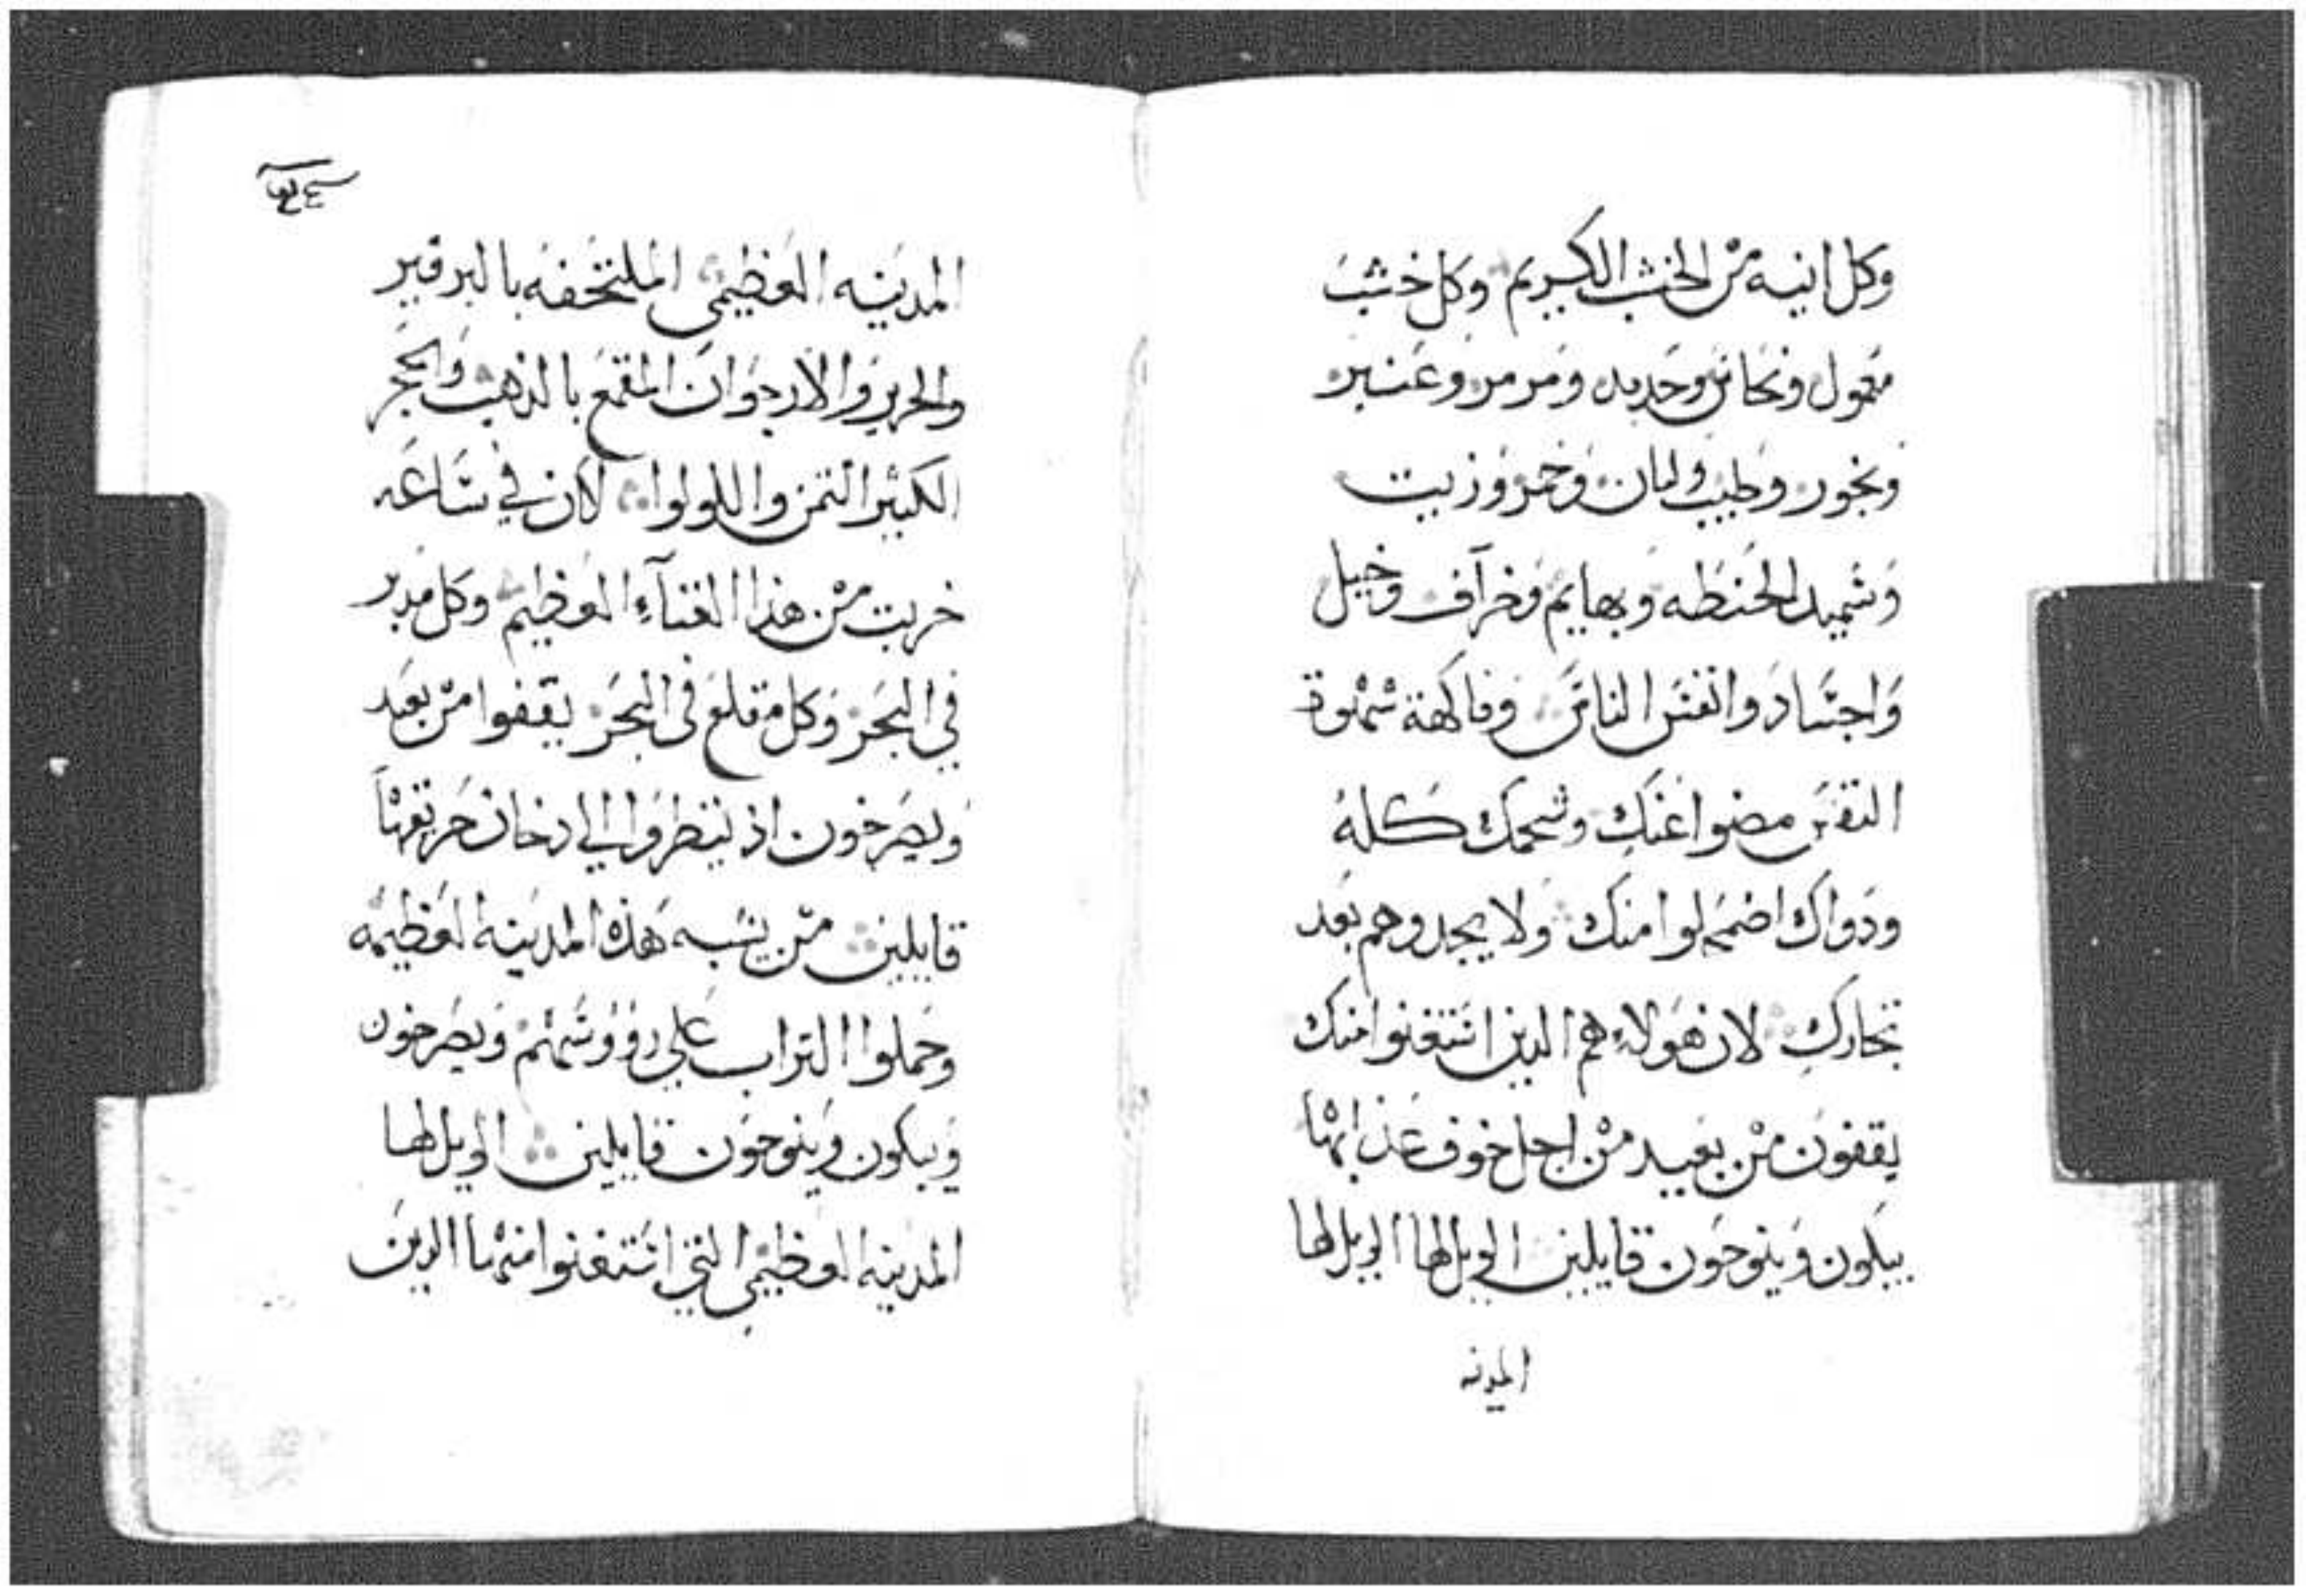 وكل انيه من الخشب الكريم وكل خشب
معمول ونحاس وحديد ومرمر وعنبر
وبخور وطيب ولبان وخمر وزيت
وسميد الحنطه وبهايم وخراف وخيل
واجساد وانفس الناس وفاكهة شهوة
النفس مضوا عنك وشحمك كله
ودواك اضمحلوا منك ولا يجدوهم بعد
تجارك لان هولاء هم الدين استغنوا منك
يقفون من بعيد من اجل خوف عذابها
يبكون وينوحون قايلين الويل لها الويل لها
المدينه
المدينه العظيمي الملتحفه بالبرفير
والحرير والارجوان المقمع بالذهب والحجر
الكثير الثمن واللولوا لان في ساعه
خربت من هذا الغناء العظيم وكل مدبر
في البحر وكل مقلع في البحر يقفوا من بعد
ويصرخون اذ ينظروا الي دخان حريقها
قايلين من يشبه هذه المدينه العظيمه
وحملوا التراب علي رووسهم ويصرخون
ويبكون وينوحون قايلين الويل لها
المدينه العظيمي التي استغنوا منها الدين